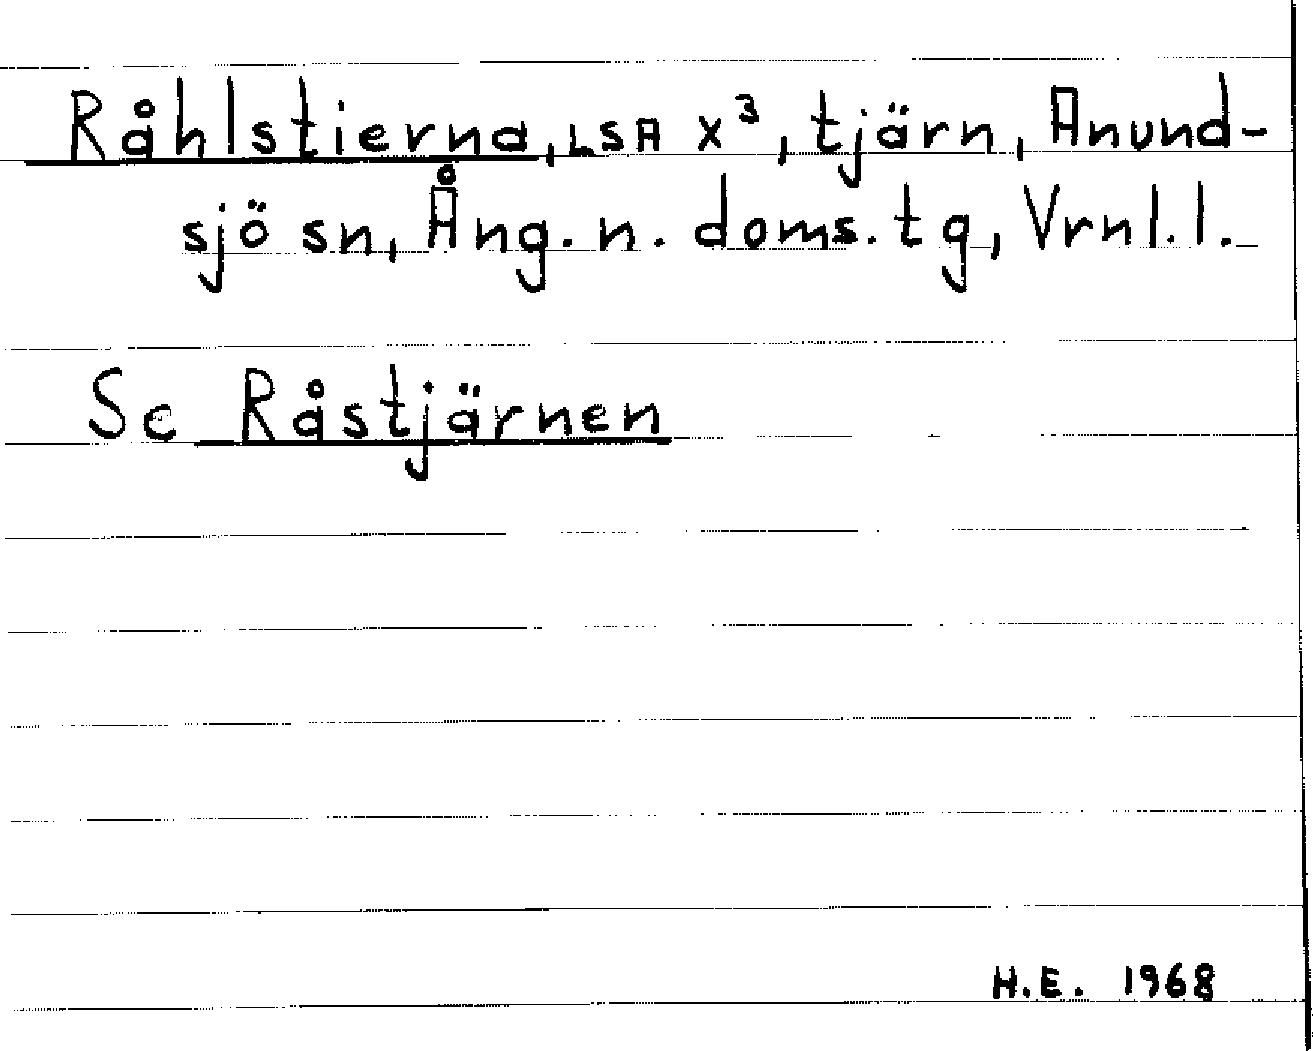 Råhlstierna, LSA X³, tjärn, Anund-
sjö sn, Ång. n. doms. tg, Vrnl. l.
Se Råstjärnen
H.E. 1968